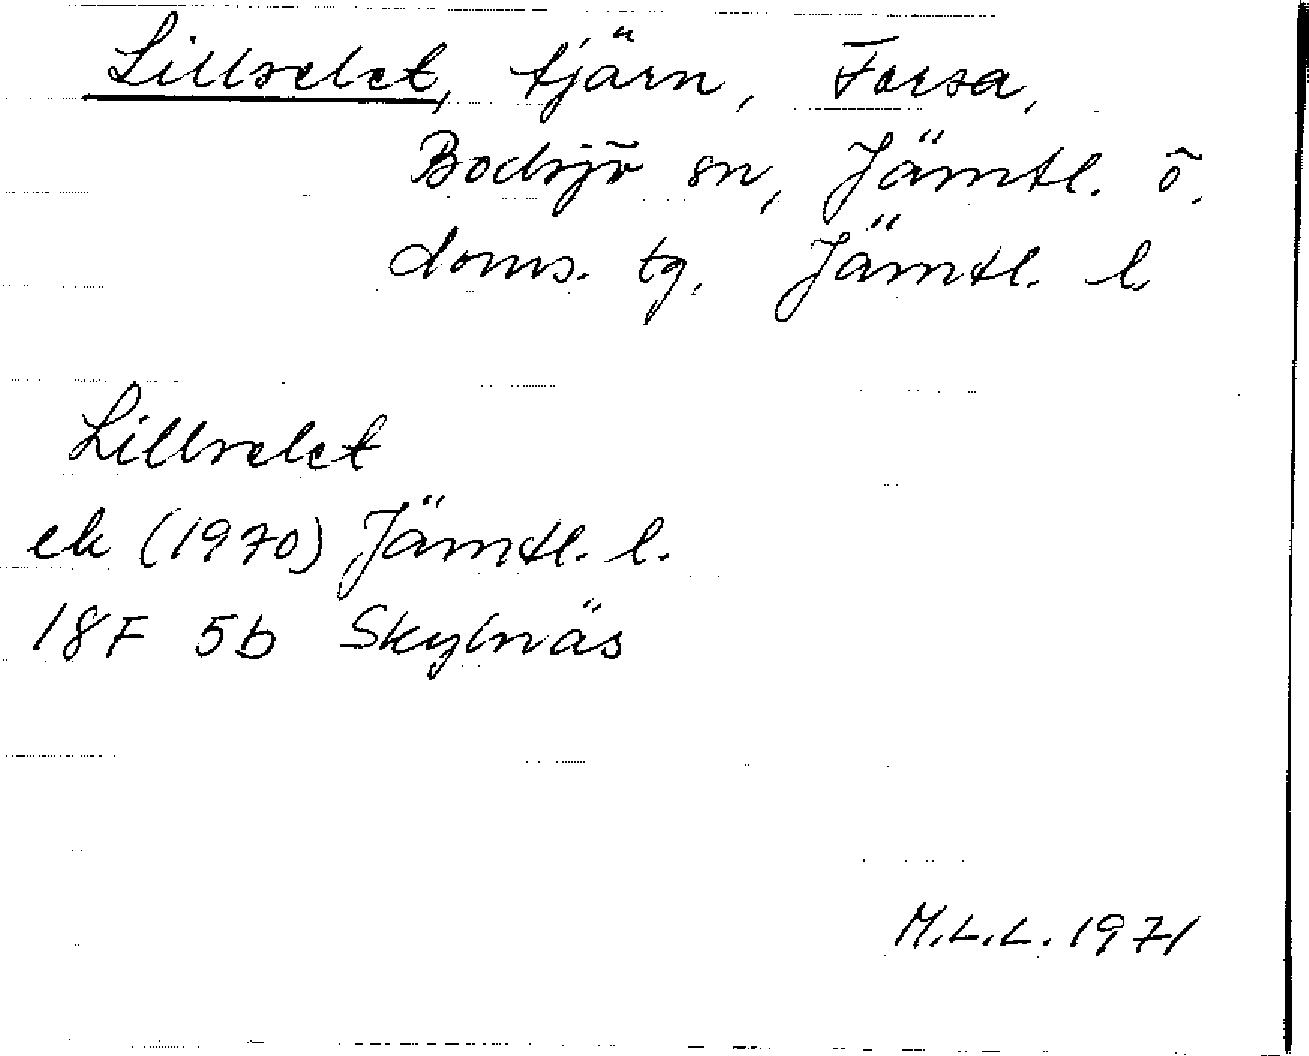 Lillselet, tjärn, Forsa,
Bodsjö sn, Jämtl. ö.
doms. tg, Jämtl. l
Lillselet
ek (1970) Jämtl. l.
18F 5b Skylnäs
M.L.L. 1971